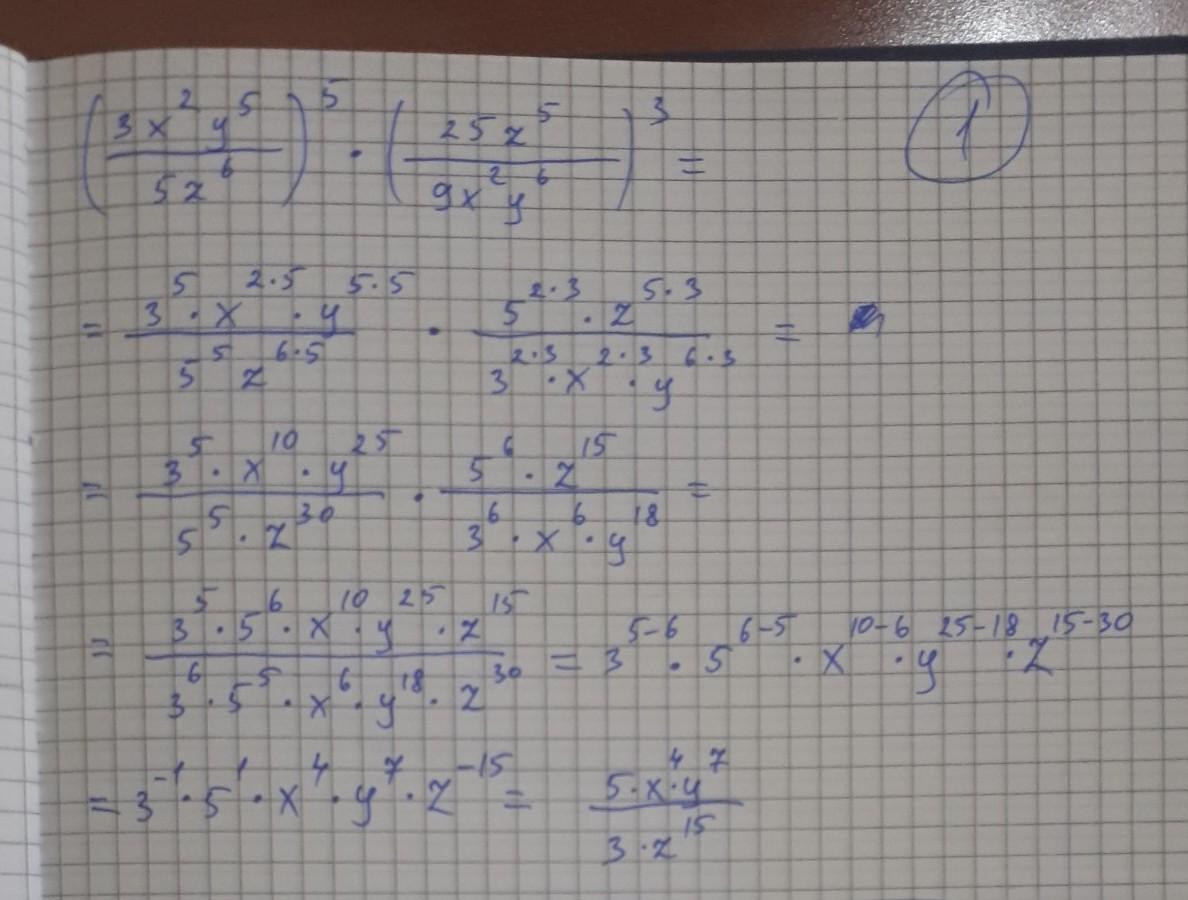 (3x²y⁵/5z⁶)⁵ · (25z⁵/9x²y⁶)³ = 1
= 3⁵·x²·⁵·y⁵·⁵/5⁵z⁶·⁵ · 5²·³·z⁵·³/3²·³·x²·³·y⁶·³ =
= 3⁵·x¹⁰·y²⁵/5⁵·z³⁰ · 5⁶·z¹⁵/3⁶·x⁶·y¹⁸ =
= 3⁵·5⁶·x¹⁰·y²⁵·z¹⁵/3⁶·5⁵·x⁶·y¹⁸·z³⁰ = 3⁵⁻⁶·5⁶⁻⁵·x¹⁰⁻⁶·y²⁵⁻¹⁸·z¹⁵⁻³⁰
= 3⁻¹·5¹·x⁴·y⁷·z⁻¹⁵ = 5·x⁴·y⁷/3·z¹⁵